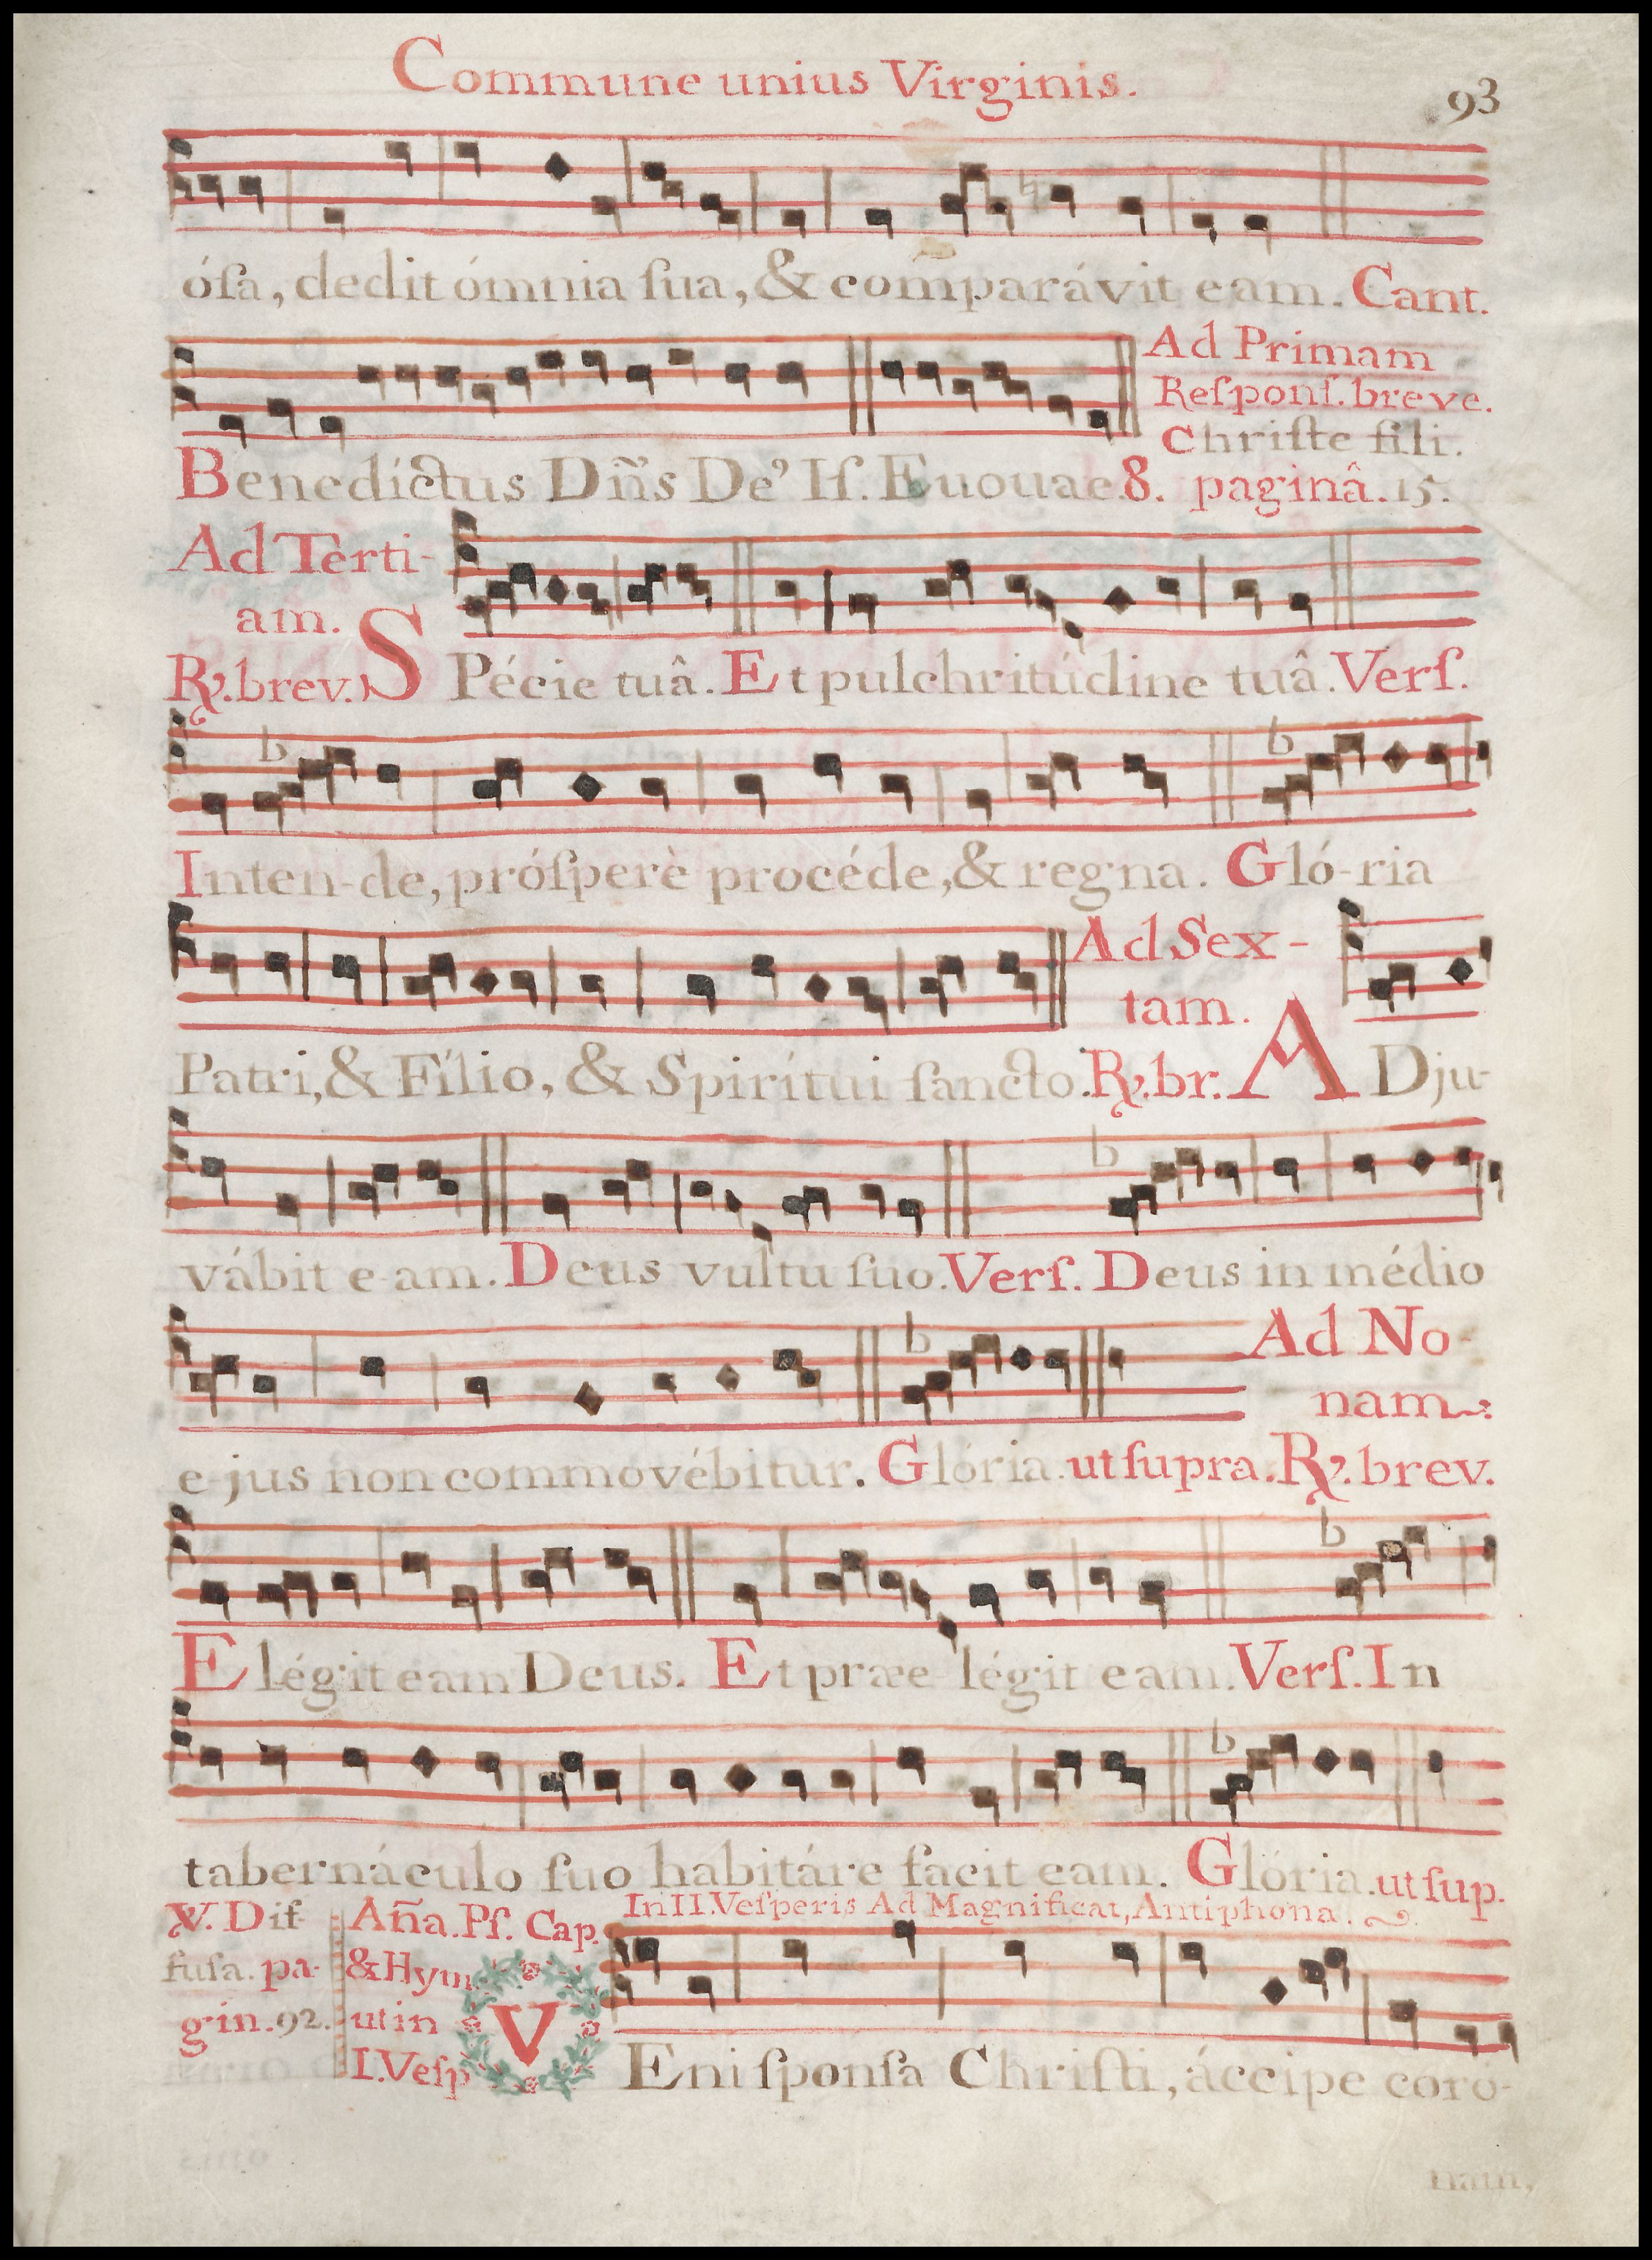 Commune unius Virginis.
93
óſa, dedit ómnia ſua, & com̃parávit eam. Cant.
Ad Primam
Reſponſ. breve.
Chriſte fili.
Benedíctus Dñs De' Iſ. Euouae. 8. paginâ. 15.
Ad Terti-
am.
℟. brev. S Pécie tuâ. Et pulchritúdine tuâ. Verſ.
Inten-de, próſperè procéde, & regna. Gló-ria
Ad Sex-
tam.
Patri, & Fílio, & Spirítui ſancto. ℟. br. A Dju-
vábit e-am. Deus vultu ſuo. Verſ. Deus in médio
Ad No-
nam.
e-jus non commovébitur. Glória. ut ſupra. ℟. brev.
Elégit eam Deus. Et præe-légit eam. Verſ. In
tabernáculo ſuo habitáre facit eam. Glória. ut ſup.
℣. Dif-
fuſa. pa-
gin. 92.
Añа. Pſ. Cap.
& Hym
ut in
I. Veſp
In II. Veſperis Ad Magnificat, Antiphona.
V Eni ſponſa Chriſti, áccipe coro-
nam,